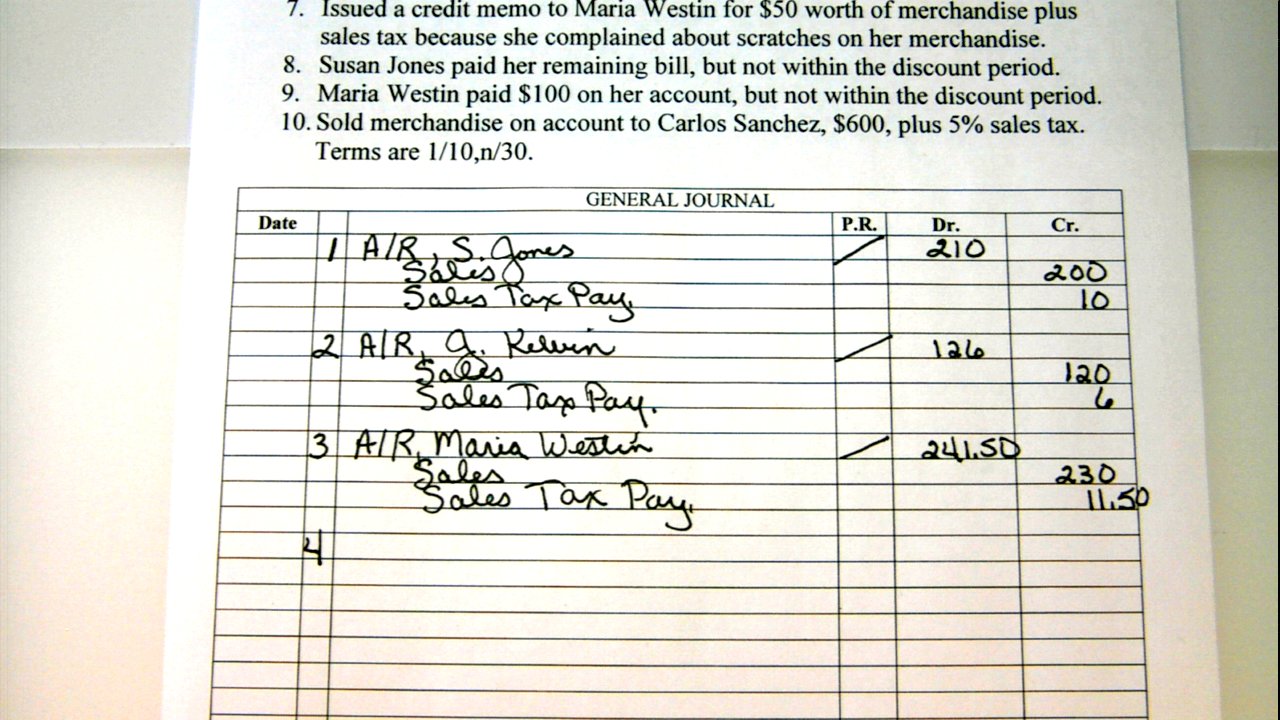 7. Issued a credit memo to Maria Westin for $50 worth of merchandise plus
sales tax because she complained about scratches on her merchandise.
8. Susan Jones paid her remaining bill, but not within the discount period.
9. Maria Westin paid $100 on her account, but not within the discount period.
10. Sold merchandise on account to Carlos Sanchez, $600, plus 5% sales tax.
Terms are 1/10,n/30.
GENERAL JOURNAL
Date P.R. Dr. Cr.
1 A/R, S. Jones 210
Sales 200
Sales Tax Pay. 10
2 A/R, J. Kelvin 126
Sales 120
Sales Tax Pay. 6
3 A/R, Maria Westin 241.50
Sales 230
Sales Tax Pay. 11.50
4